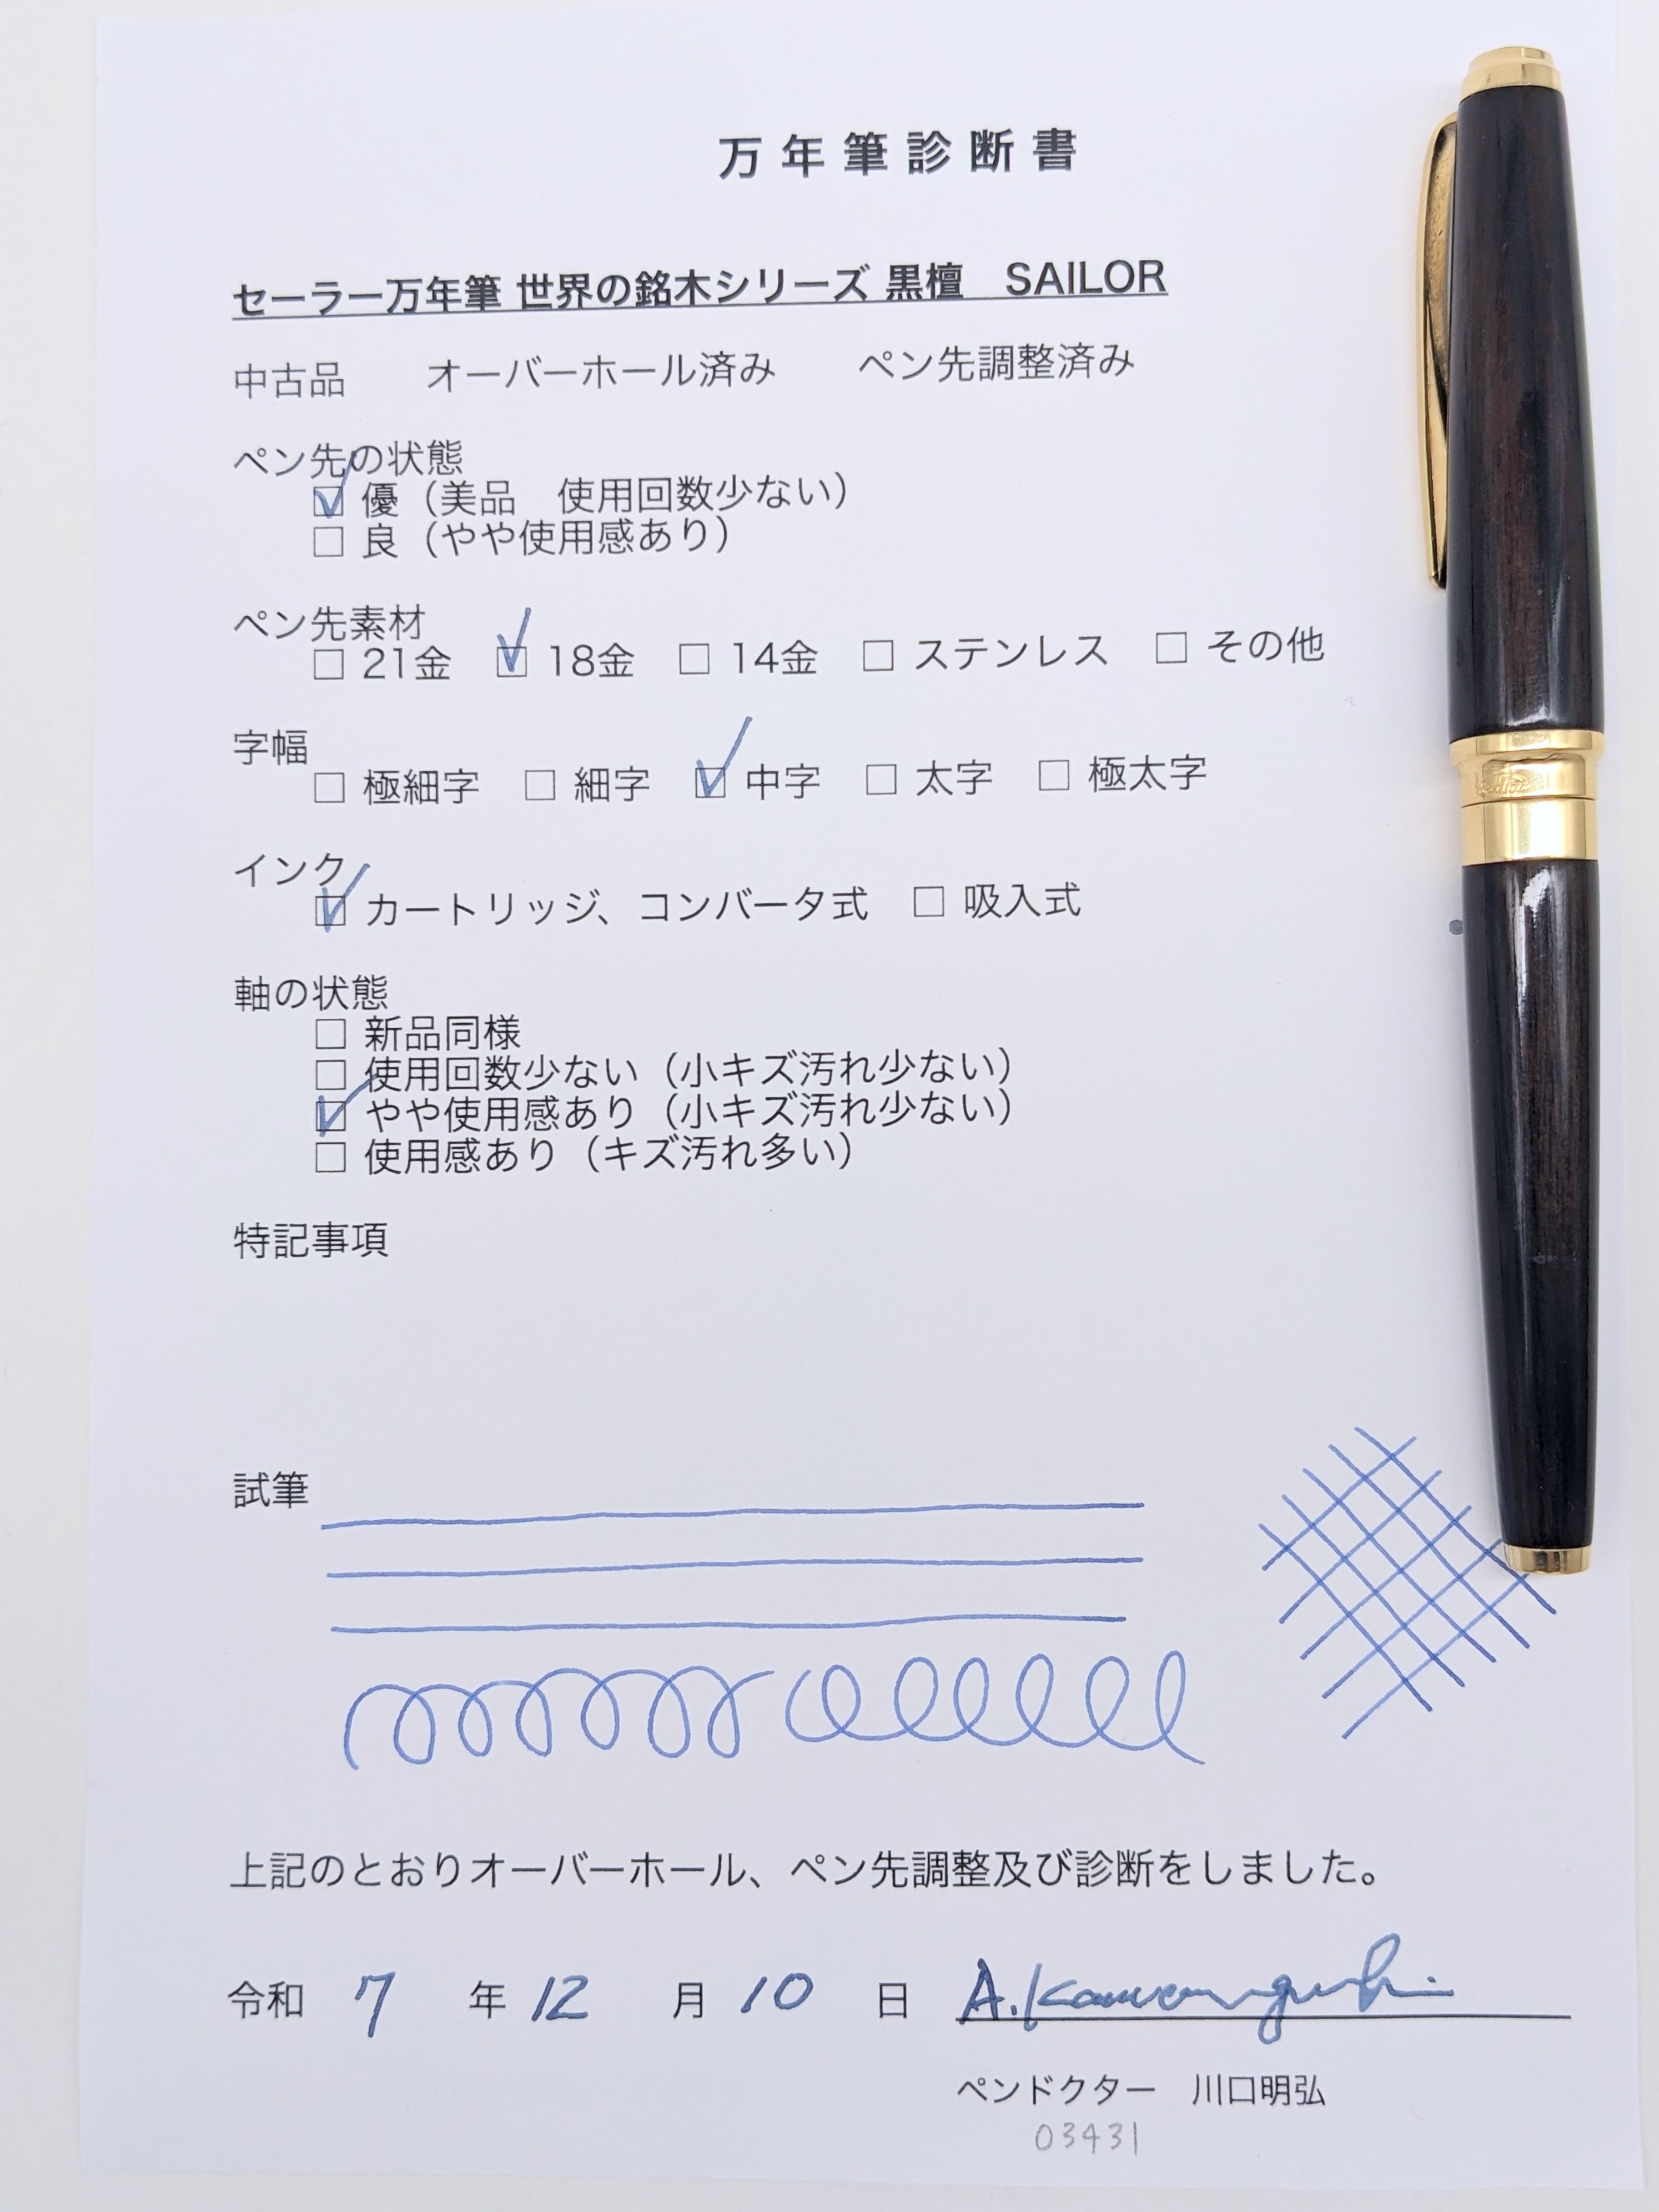 万年筆診断書
セーラー万年筆 世界の銘木シリーズ 黒檀　SAILOR
中古品　　オーバーホール済み　　ペン先調整済み
ペン先の状態
☑ 優（美品　使用回数少ない）
□ 良（やや使用感あり）
ペン先素材
□ 21金　☑ 18金　□ 14金　□ ステンレス　□ その他
字幅
□ 極細字　□ 細字　☑ 中字　□ 太字　□ 極太字
インク
☑ カートリッジ、コンバータ式　□ 吸入式
軸の状態
□ 新品同様
□ 使用回数少ない（小キズ汚れ少ない）
☑ やや使用感あり（小キズ汚れ少ない）
□ 使用感あり（キズ汚れ多い）
特記事項
試筆
上記のとおりオーバーホール、ペン先調整及び診断をしました。
令和 7 年 12 月 10 日 A.Kawaguchi
ペンドクター　川口明弘
03431